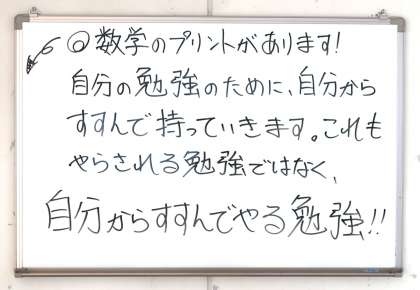 ◎数学のプリントがあります!
自分の勉強のために、自分から
すすんで持っていきます。これも
やらされる勉強ではなく、
自分からすすんでやる勉強!!